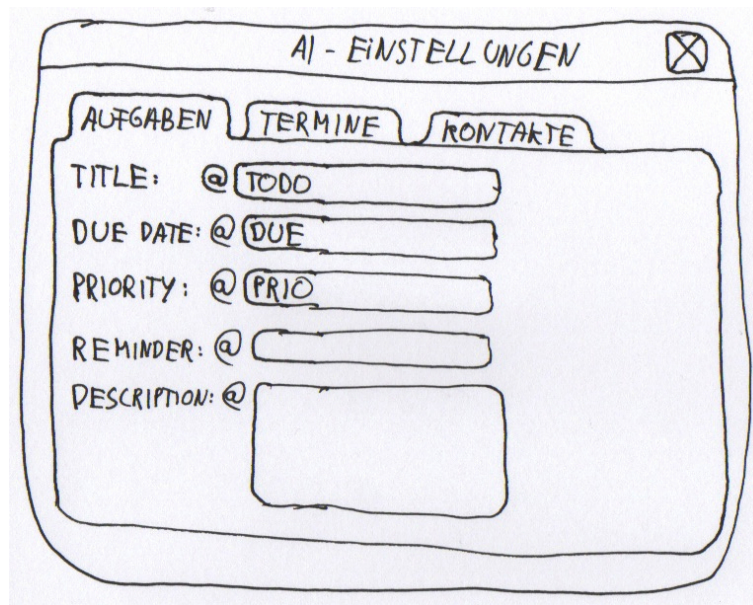 AI - EINSTELLUNGEN
AUFGABEN TERMINE KONTAKTE
TITLE: @ TODO
DUE DATE: @ DUE
PRIORITY: @ PRIO
REMINDER: @
DESCRIPTION: @